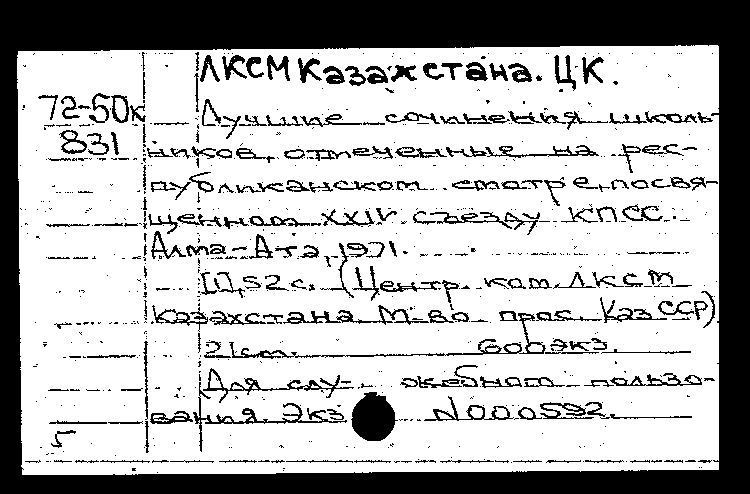 ЛКСМ Казахстана. ЦК.
72-50к
831
Лучшие сочинения школь-
ников, отмеченные на рес-
публиканском смотре, посвя-
щенном XXIV съезду КПСС.
Алма-Ата, 1971.
[1], 52 с. (Центр. ком. ЛКСМ
Казахстана. М-во прос. КазССР)
21 см. 600 экз.
Для слу- жебного пользо-
вания. Экз N000592.
5